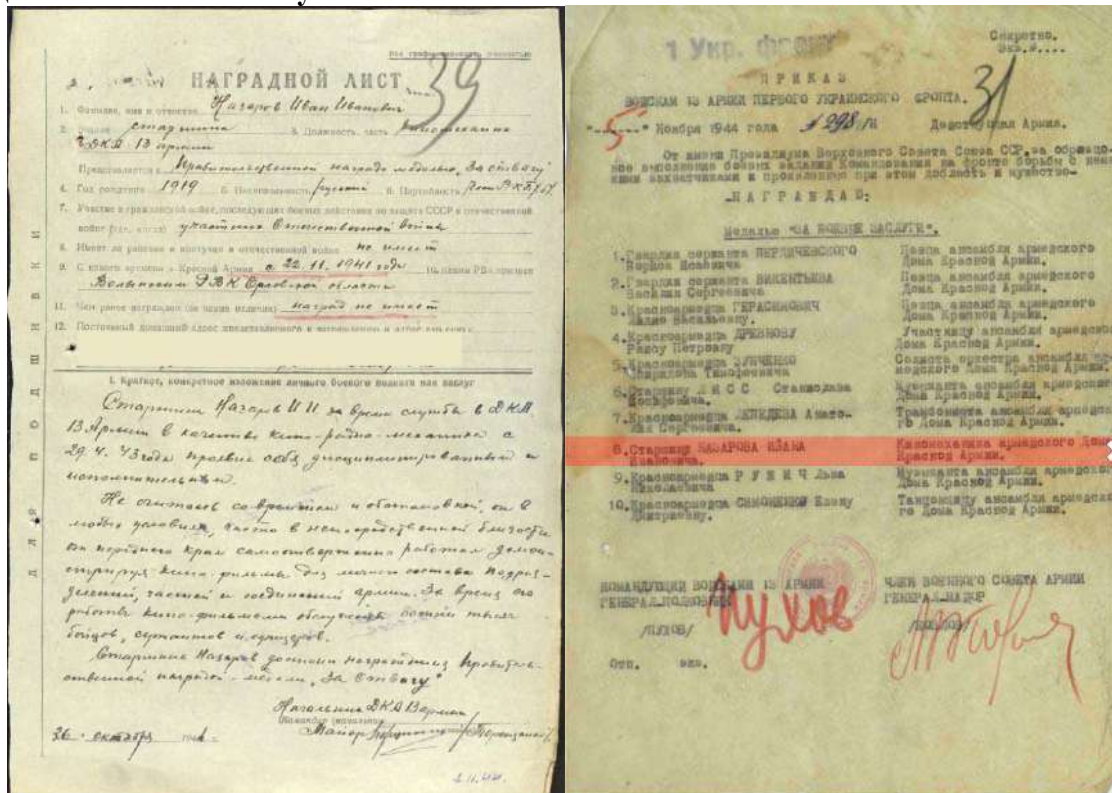 НАГРАДНОЙ ЛИСТ
39
1. Фамилия, имя и отчество Назаров Иван Иванович
2. старшина 3. Должность, часть Киномеханик
ДКА 13 армии
Представляется к Правительственной награде медалью „За отвагу"
4. Год рождения 1919 5. Национальность русский 6. Партийность
7. Участие в гражданской войне, последующих боевых действиях по защите СССР и отечественной
войне (где, когда) участник Отечественной войны
8. Имеет ли ранения и контузии в отечественной войне не имеет
9. С какого времени в Красной Армии с 22.11.1941 года 10. Каким РВК призван
РВК Орловской области
11. Чем ранее награжден (за какие отличия) наград не имеет
12. Постоянный домашний адрес
I. Краткое, конкретное изложение личного боевого подвига или заслуг
Старшина Назаров И И за время службы в ДКА
13 Армии в качестве кино-радио-механика с
29.4.43 года проявил себя дисциплинированным и
исполнительным.
Не считаясь со временем и обстановкой, он в
любых условиях, часто в непосредственной близости
от переднего края самоотверженно работал демон-
стрируя кино-фильмы для личного состава подраз-
делений, частей и соединений армии. За время его
работы кино-фильмами обслужено сотни тысяч
бойцов, сержантов и офицеров.
Старшина Назаров достоин награждения Правитель-
ственной наградой - медалью „За Отвагу"
Начальник ДКА 13 армии
Майор
26 октября
ДЛЯ ПОДШИВКИ
1 Укр. ФРОНТ
Секретно.
31
ПРИКАЗ
ВОЙСКАМ 13 АРМИИ ПЕРВОГО УКРАИНСКОГО ФРОНТА.
"5" Ноября 1944 года № 298/н Действующая Армия.
От имени Президиума Верховного Совета Союза ССР, за образцо-
вое выполнение боевых заданий Командования на фронте борьбы с немец-
кими захватчиками и проявленные при этом доблесть и мужество-
-НАГРАЖДАЮ:
Медалью "ЗА БОЕВЫЕ ЗАСЛУГИ".
1. Гвардии сержанта Певца ансамбля армейского
Бориса Исаевича Дома Красной Армии.
2. Гвардии сержанта ВИКЕНТЬЕВА Певца ансамбля армейского
Василия Сергеевича Дома Красной Армии.
3. Красноармейца ГЕРАСИМОВИЧ Певца ансамбля армейского
Васильевну. Дома Красной Армии.
4. Красноармейца ДРЕВНОВУ Участницу ансамбля армейского
Раису Петровну Дома Красной Армии.
5. Красноармейца Солиста оркестра ансамбля ар-
Тимофеевича мейского Дома Красной Армии.
6. Старшину ЛИСС Станислава Музыканта ансамбля армейского
Иосифовича. Дома Красной Армии.
7. Красноармейца ЛЕБЕДЕВА Анато- ансамбля армейско-
лия Сергеевича. го Дома Красной Армии.
8. Старшину НАЗАРОВА ИВАНА Киномеханика армейского Дома
Ивановича. Красной Армии.
9. Красноармейца РУНИЧ Льва Музыканта ансамбля армейского
Николаевича Дома Красной Армии.
10. Красноармейца СИМОНЕНКО Елену Танцовщицу ансамбля армейско-
Дмитриевну. го Дома Красной Армии.
КОМАНДУЮЩИЙ ВОЙСКАМИ 13 АРМИИ ЧЛЕН ВОЕННОГО СОВЕТА АРМИИ
ГЕНЕРАЛ-ПОЛКОВНИК ГЕНЕРАЛ-МАЙОР
Пухов
/ПУХОВ/
Отп. экз.